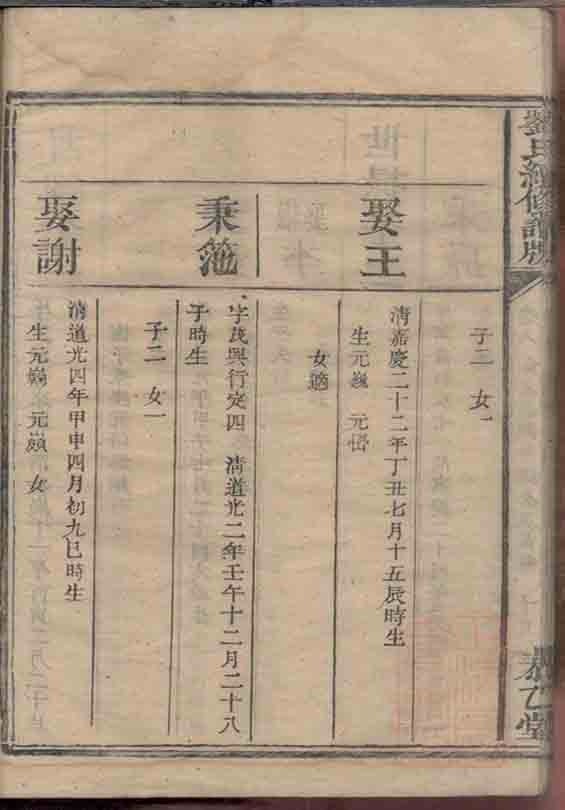 劉氏經修譜牒
乙堂
子二 女一
娶王
清嘉慶二十二年丁丑七月十五辰時生
生元巍 元
女適
秉箢
字茂興行定四 清道光二年壬午十二月二十八
子時生
子二 女一
娶謝
清道光四年甲申四月初九巳時生
生元 元 女